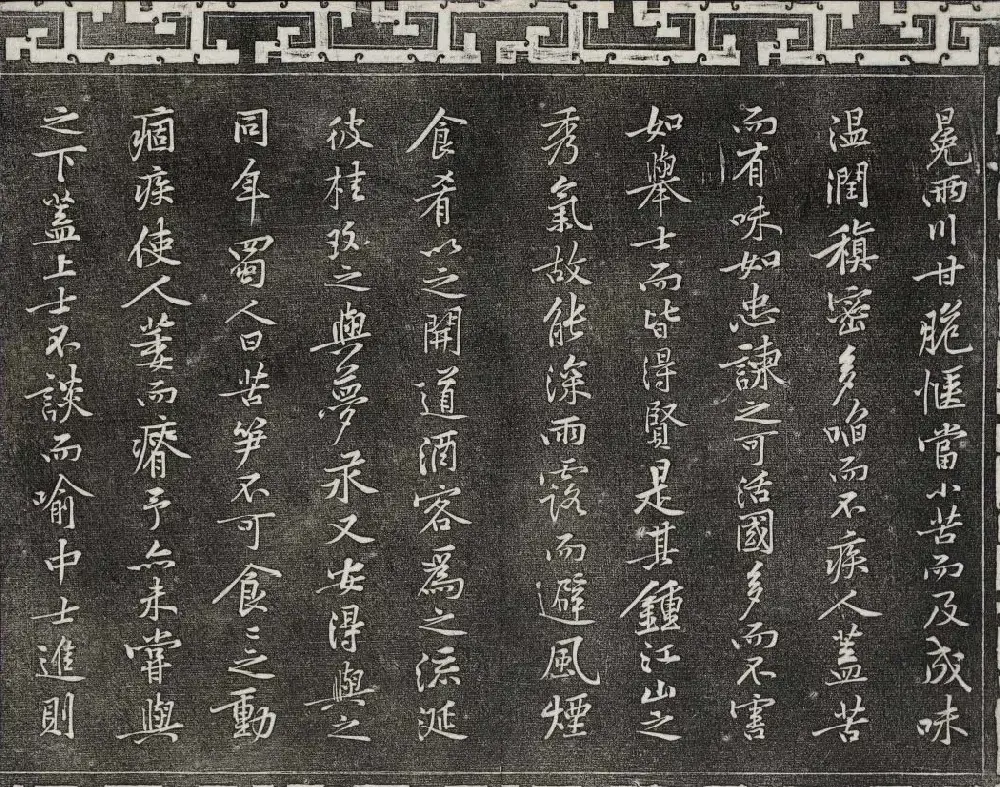 冕兩川甘脆愜當小苦而及成味
温潤稹密多啗而不疾人蓋苦
而有味如忠諫之可活國多而不害
如舉士而皆得賢是其鍾江山之
秀氣故能深雨露而避風煙
食肴以之開道酒客爲之流涎
彼桂玫之與夢汞又安得與之
同年蜀人曰苦笋不可食〻之動
痼疾使人萎而瘠予亦未嘗與
之下蓋上士不談而喻中士進則